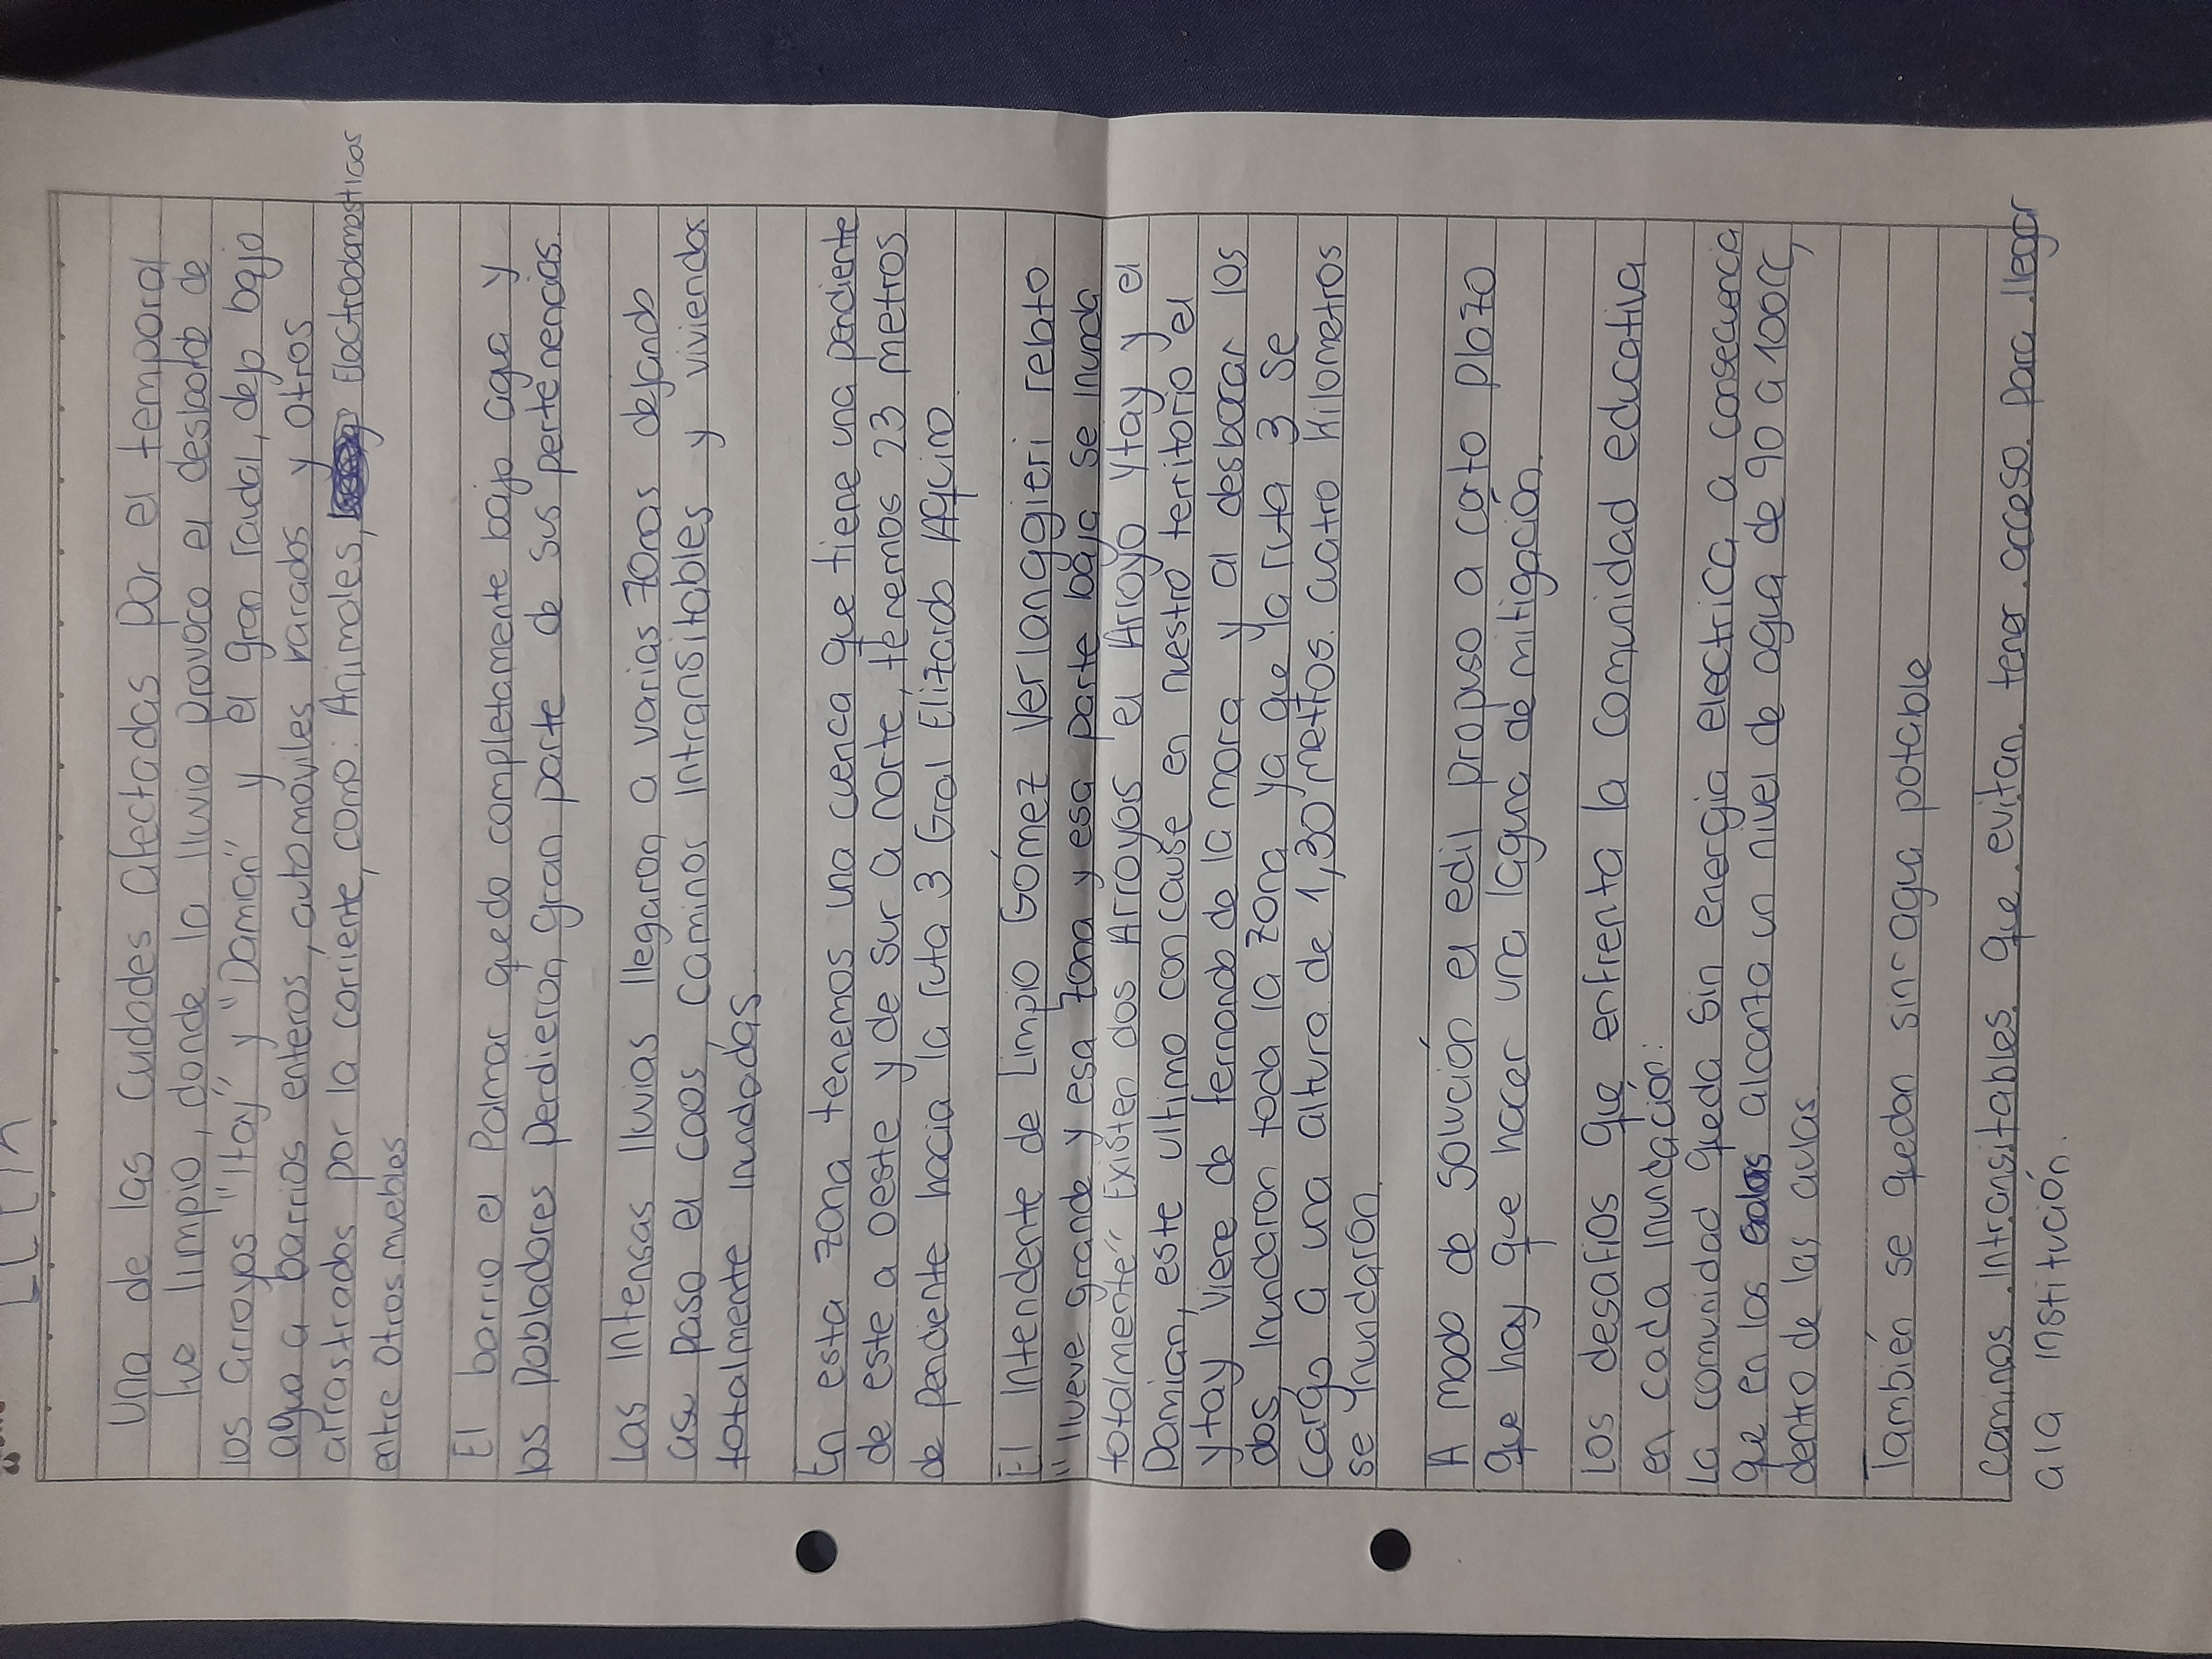 Una de las Cudades afectadas por el temporal
fue limpio, donde la lluvia provoco el desborde de
los arroyos "Itay" y "Damian" y el gran raudal, dejo bajo
agua a barrios enteros, automóviles varados y otros
arrastrados por la corriente, como: Animales, Electrodomesticos
entre otros muebles
El barrio el Palmar quedo completamente bajo agua y
los Pobladores Perdieron gran parte de sus pertenencias.
Las Intensas lluvias llegaron a varias zonas dejando
asu paso el caos, caminos intransitables y viviendas
totalmente inundadas
En esta zona tenemos una cuenca que tiene una pendiente
de este a oeste y de sur a norte, tenemos 23 metros
de pendiente hacia la ruta 3 Gral Elizardo Aquino
El Intendente de Limpio Gómez Verlanggieri relato
"llueve grande y esa zona y esa parte baja se inunda
totalmente" Existen dos Arroyos el Arroyo Ytay y el
Damian, este ultimo con cause en nuestro territorio el
ytay viene de fernando de la mora y al desbocar los
dos, inundaron toda la zona ya que la ruta 3 se
cargo a una altura de 1,30 metros. cuatro kilometros
se Ynundaron.
A modo de solución el edil propuso a corto plazo
que hay que hacer una laguna de mitigación.
Los desafios que enfrenta la comunidad educativa
en cada inundación:
La comunidad queda sin energia electrica a consecuencia
que en las salas alcanza un nivel de agua de 90 a 100cc,
dentro de las aulas
También se quedan sin agua potable
caminos intransitables que evitan tener acceso para llegar
a la institución.